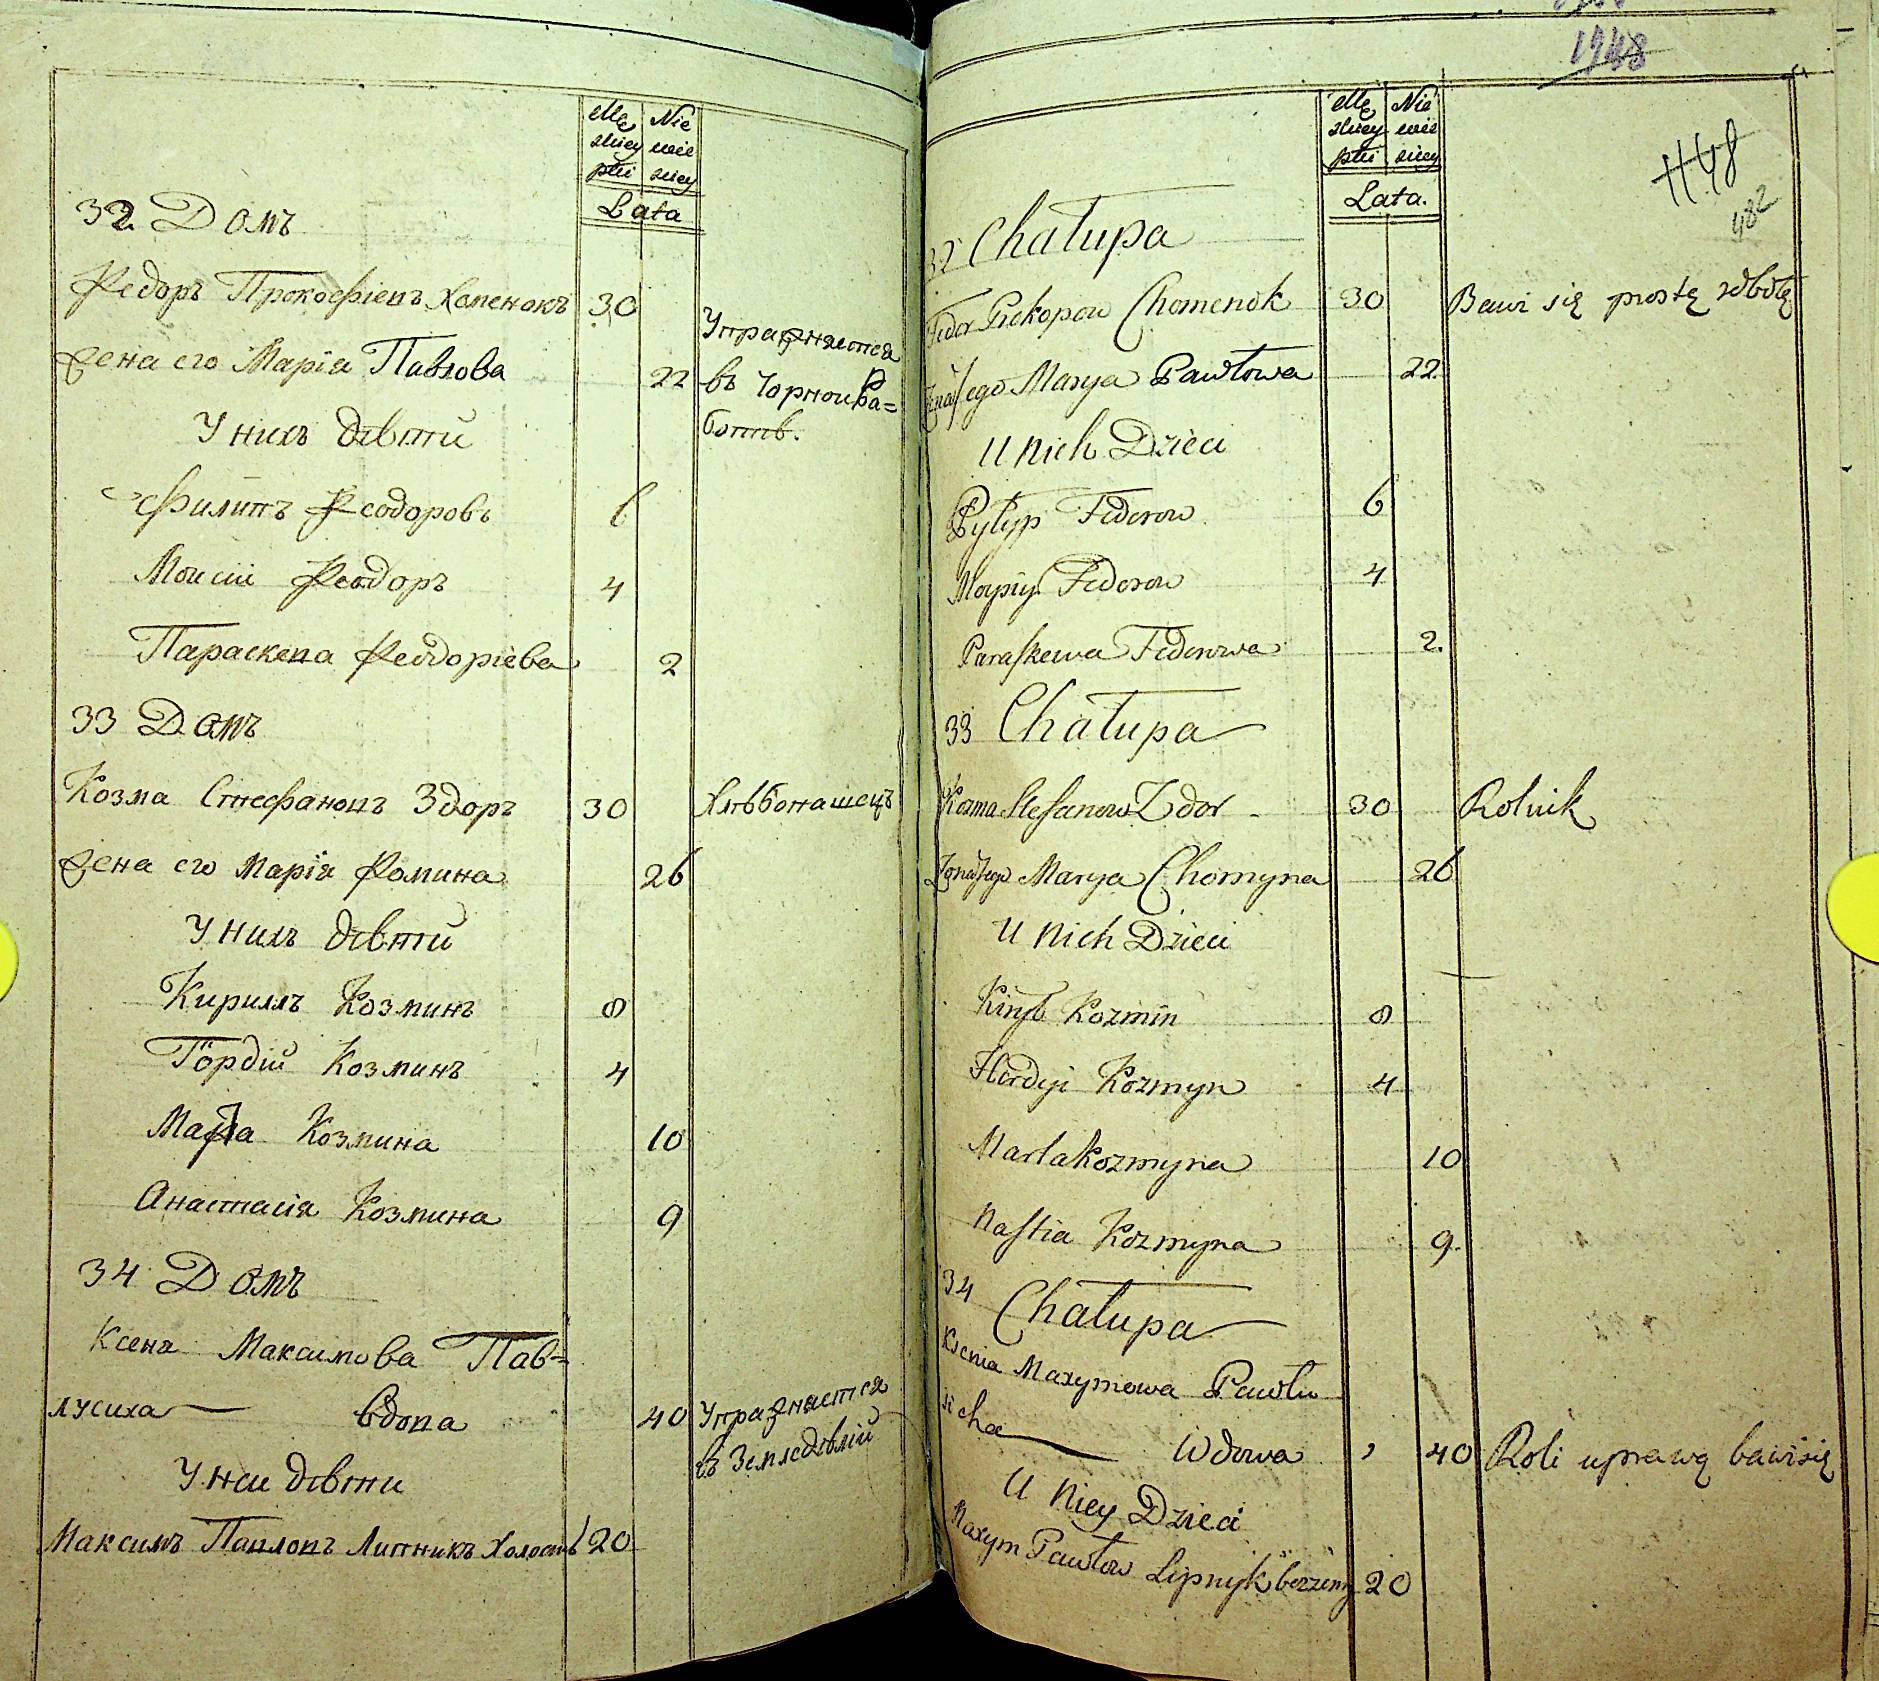 Mę Nie
skiey wie
płci skiey
Lata
32 Домъ
Федоръ Прокофіевъ Хоменокъ 30
Упражняется
Жена его Марія Павлова 22 въ Чорной Ра=
ботѣ.
У нихъ дѣти
Филипъ Феодоровъ 6
Моисій Феодоръ 4
Параскева Феодоріева 2
33 Домъ
Козма Стефановъ Здоръ 30 Хлѣбопашецъ
Жена его Марія Фомина 26
У нихъ дѣти
Кириллъ Козминъ 8
Гордій Козминъ 4
Марѳа Козмина 10
Анастасія Козмина 9
34 Домъ
Ксенія Максимова Пав=
лусиха вдова 40 Упражнястся
въ Земледѣлій
У неи дѣти
Максимъ Павловъ Липникъ Холостъ 20
1948
Mę Nie
skiey wie
płci skiey
Lata.
448
482
32 Chałupa
Fedor Prokopow Chomenok 30 Bawi się prostą robotą
Żona Jego Marya Pawłowa 22
U Nich Dzieci
Pylyp Fedorow 6
Moysiy Fedorow 4
Paraskewa Fedorowa 2.
33 Chałupa
Kozma Stefanow Zdor 30 Rolnik
Żona Jego Marya Chomyna 26
U Nich Dzieci
Kirył Kozmin 8
Hordyi Kozmyn 4
Marta Kozmyna 10
Nastia Kozmyna 9.
34
Chałupa
Ksenia Maxymowa Pawłu
sicha Wdowa , 40 Roli uprawą bawi się
U Niey Dzieci
Maxym Pawłow Lipnyk bezżeny 20